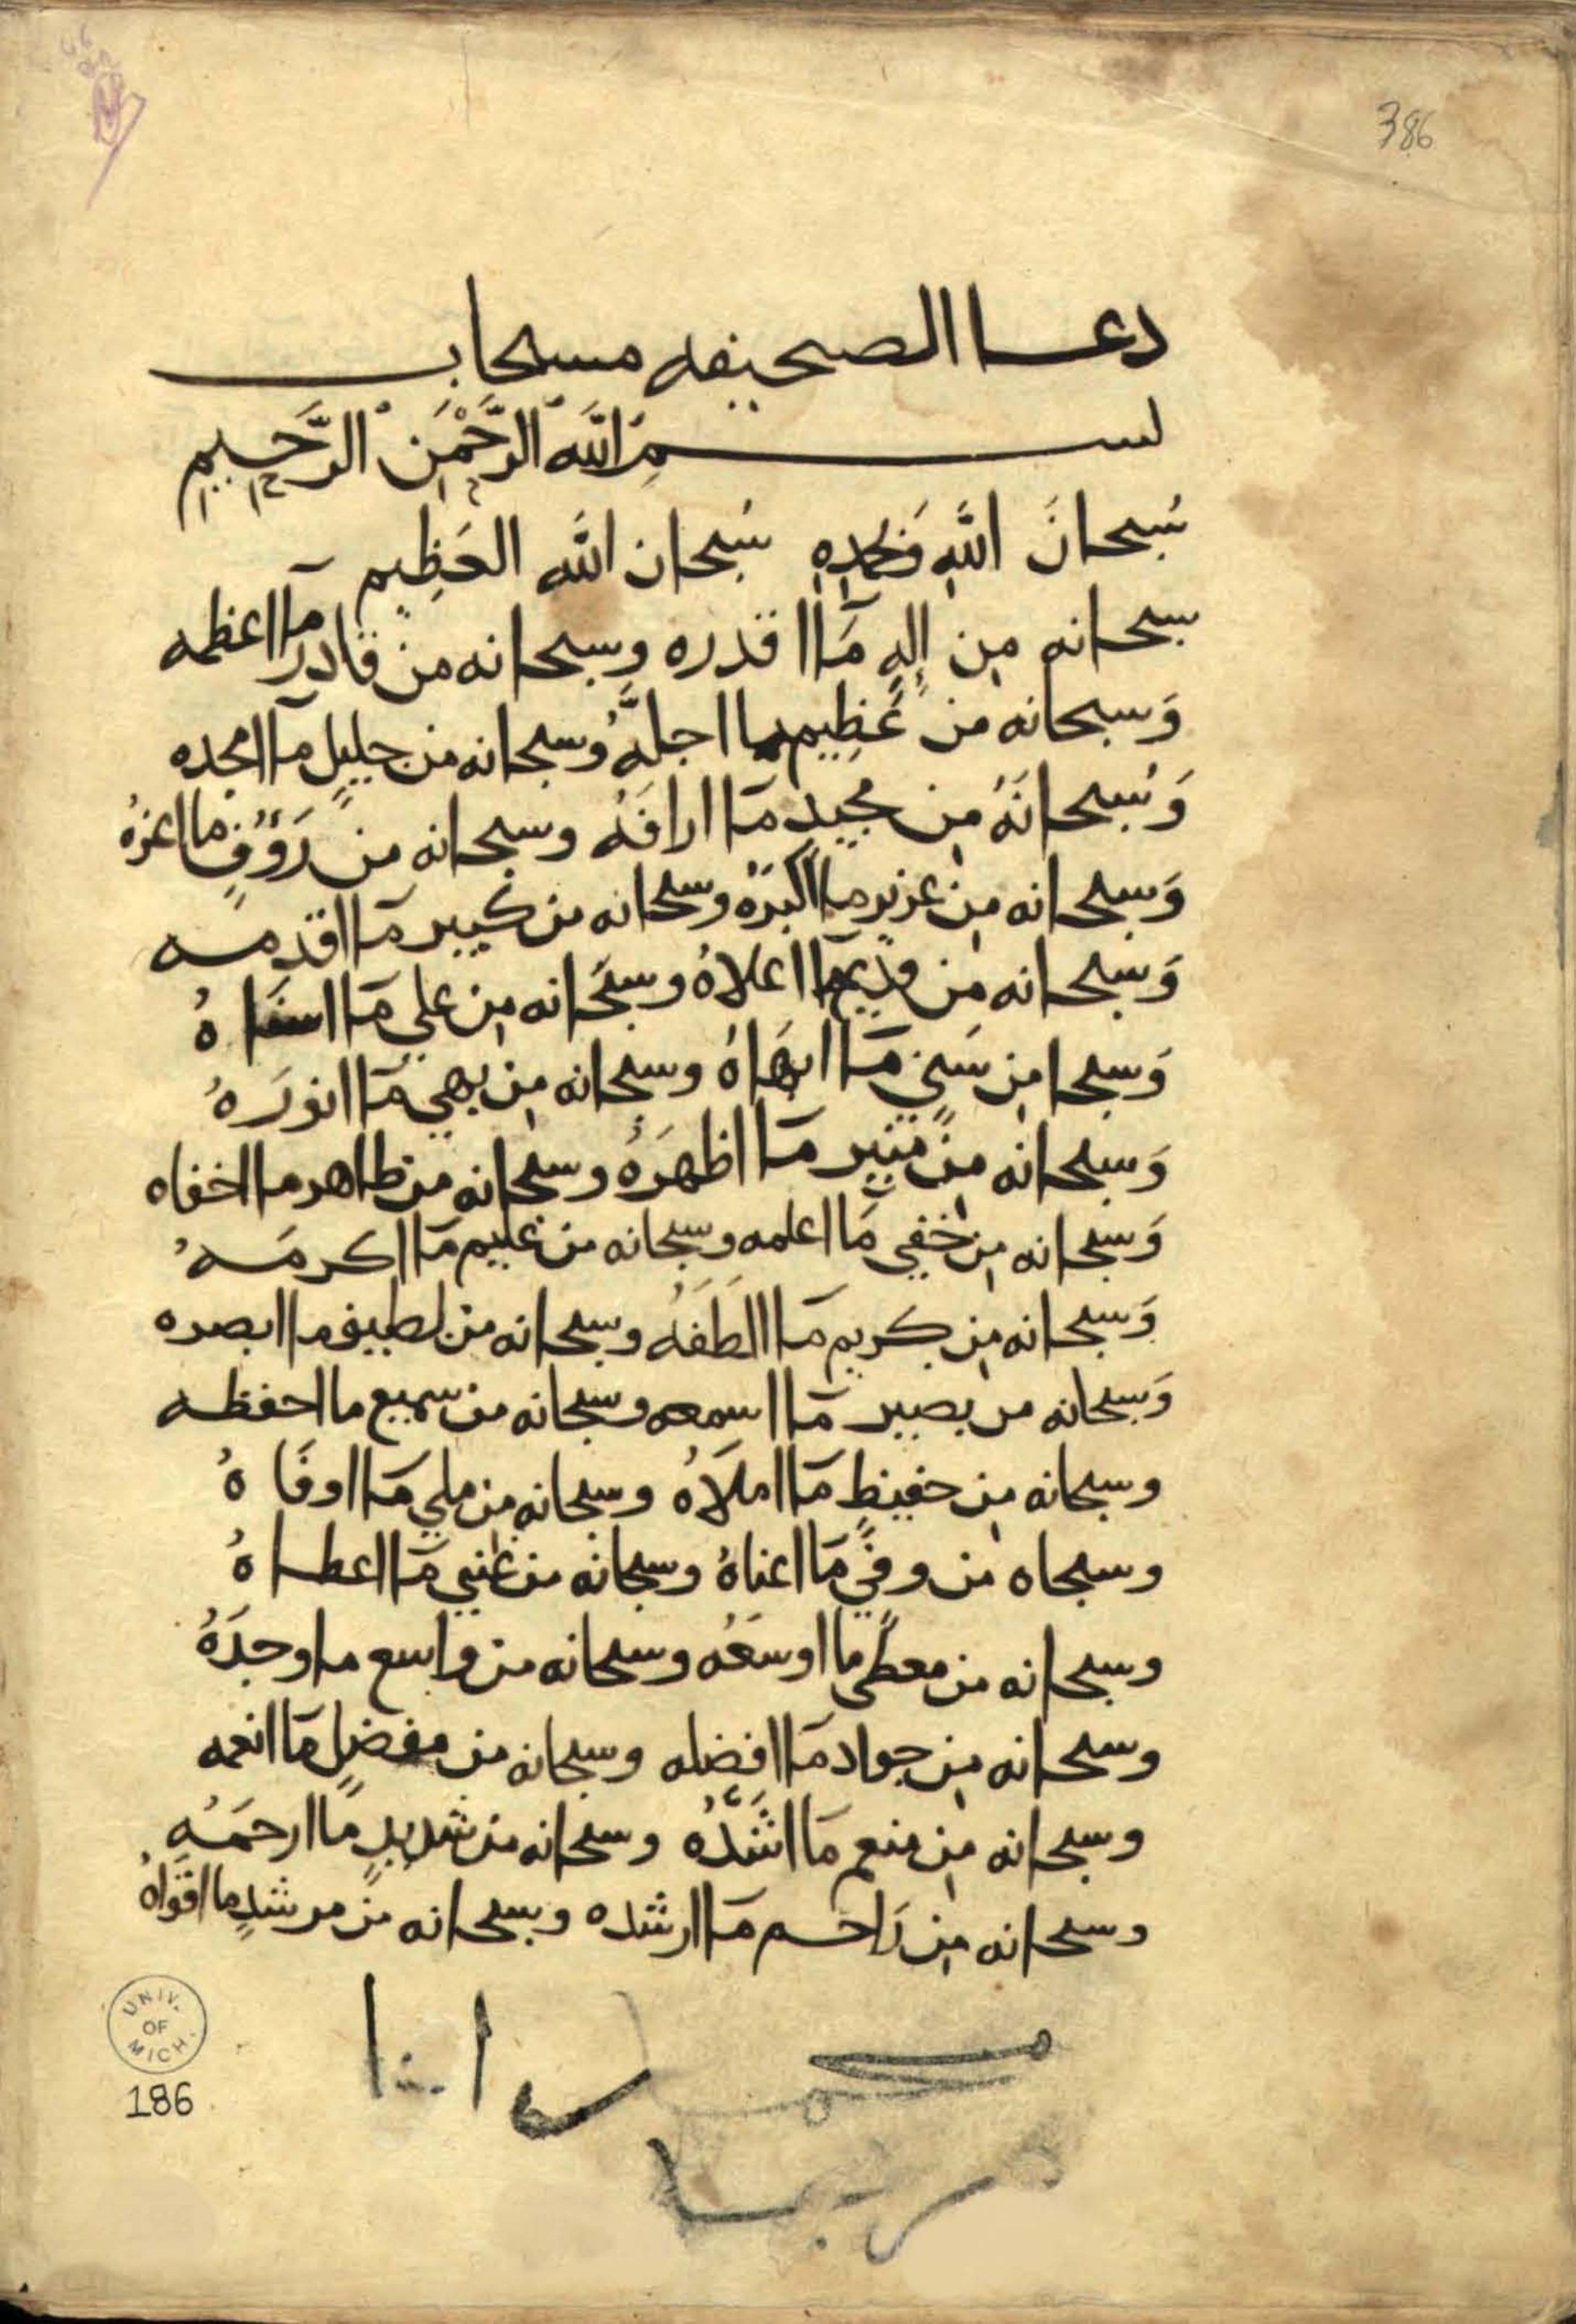 386
دعا الصحيفه مستجاب
بسم الله الرَّحْمَن الرَّحِيم
سُبحانَ اللهِ وَبحمدهِ سُبحان الله العَظِيم
سبحانه مِن إلهٍ مَا اقدره وسبحانه من قادر مآ اعظمه
وَسبحانه من عَظِيمٍ ما اجلَّهُ وسبحانه من جليلٍ مآ امجده
وَسُبحانَهُ مِن مجيدٍ مَا ارافَهُ وسبحانه من رَوُفٍ ما اعزهُ
وَسبحانه مِن عزيزٍ ما اكبرَهُ وسبحانه من كبير مَا اقدمه
وَسبحانه مِن قديمٍ مآ اعلاهُ وسبحَانه مِن علي مَا اسناهُ
وَسبحا مِن سَني مَا ابهَاهُ وسبحانه مِن بهي مَا انورَهُ
وَسبحانه مِن مُنير مَا اظهرَهُ وسبحانه من ظاهر ما اخفاه
وَسبحانه مِن خفي مَا اعلمه وسبحانه من عليم مَا اكرمَهُ
وَسبحانه مِن كريم مَا الطَفَهُ وسبحانه من لطيف ما ابصره
وَسبحانه من بصير مَا اسمعه وسبحانه من سميع ما احفظه
وسبحانه مِن حفيظٍ مَا املاَهُ وسبحانه من ملي مَا اوفَاهُ
وسبحاه من وفيٍّ مَا اغناهُ وسبحانه من غني مَا اعطاهُ
وسبحانه من معطًى ما اوسعَه وسبحانه من واسع ما اوجدَهُ
وسبحانه مِن جواد مَا افضله وسبحانه من مفضلٍ مَا انعمه
وسبحانه مِن منعم مَا اشَدَّهُ وسبحانه من شديدٍ مَا ارحمَهُ
وسبحانه مِن رَاحم مَا ارشده وسبحانه مِن مرشدٍ ما اقواهُ
UNIV. OF MICH.
186